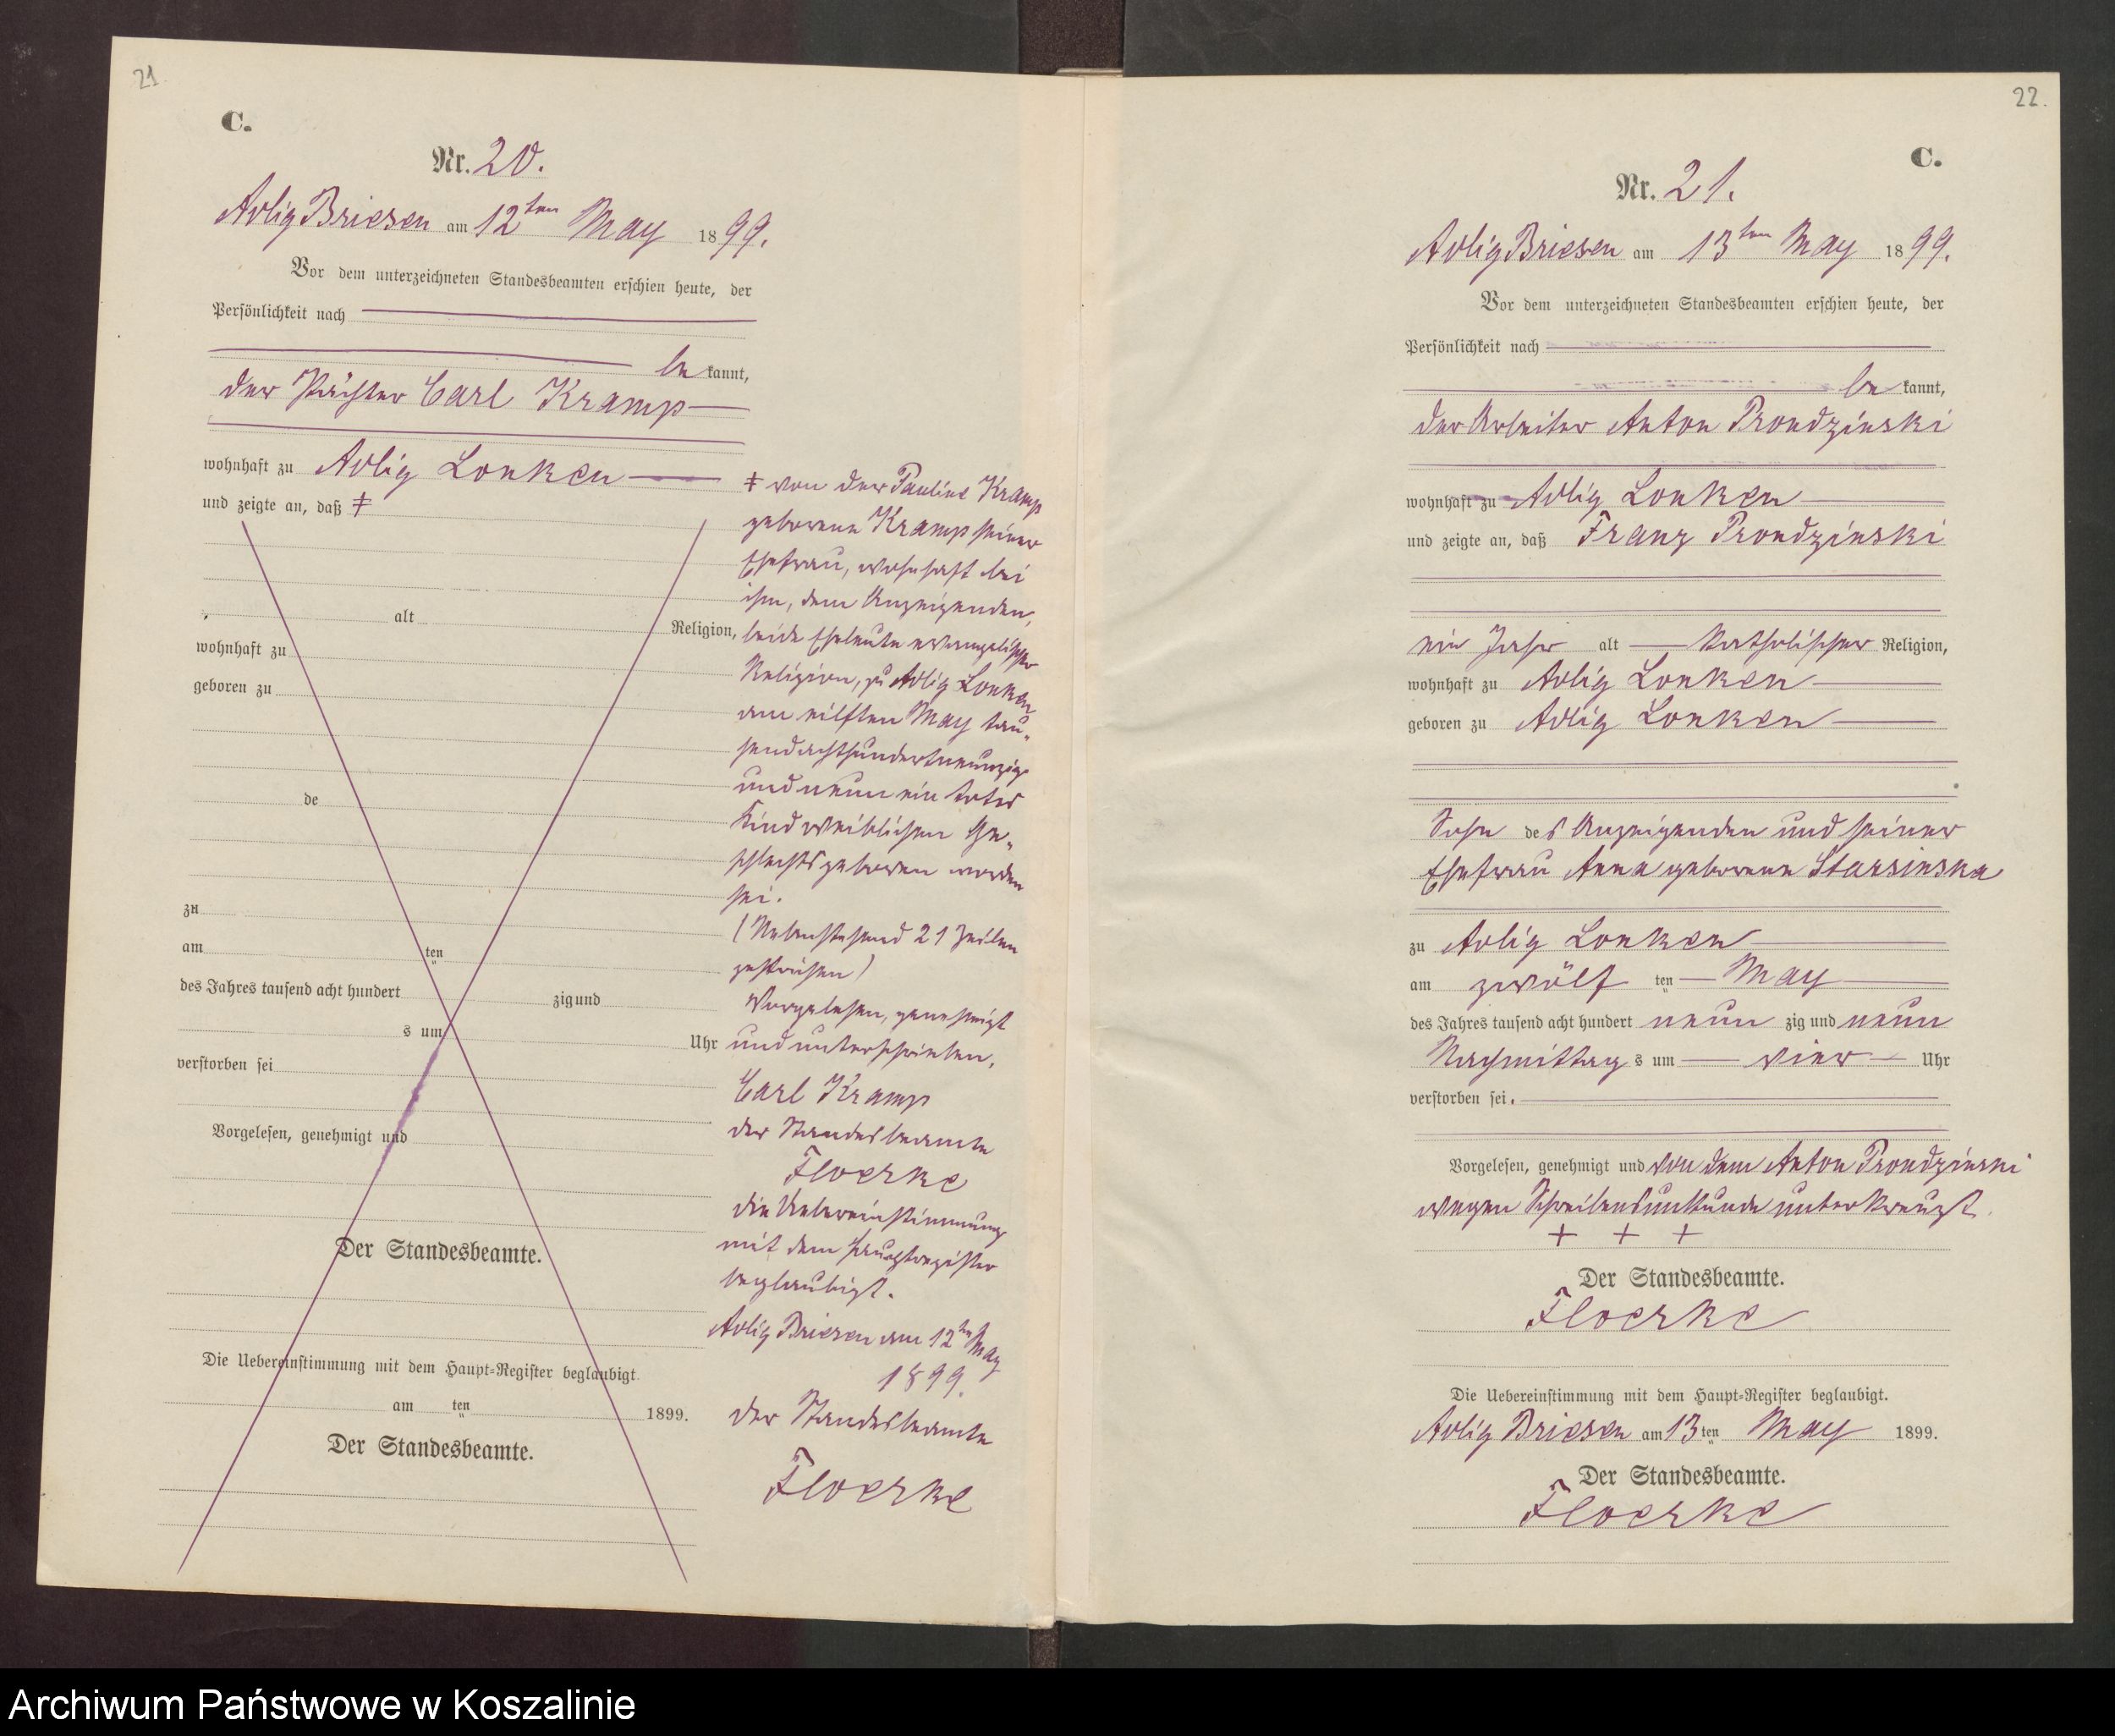 21
C.
Nr. 20.
Adlig Briesen am 12ten May 1899.
Vor dem unterzeichneten Standesbeamten erschien heute, der
Persönlichkeit nach
be kannt,
der Pächter Carl Kramp
wohnhaft zu Adlig Lonken
und zeigte an, daß ‡
alt Religion,
wohnhaft zu
geboren zu
de
zu
am ten
des Jahres tausend acht hundert zig und
s um Uhr
verstorben sei
Vorgelesen, genehmigt und
Der Standesbeamte.
Die Uebereinstimmung mit dem Haupt-Register beglaubigt.
am ten 1899.
Der Standesbeamte.
‡ von der Pauline Kramp
geborene Kramp seiner
Ehefrau, wohnhaft bei
ihm, dem Anzeigenden,
beide Eheleute evangelischer
Religion, zu Adlig Lonken
am eilften May tau-
sendachthundertneunzig
und neun ein todtes
Kind weiblichen Ge-
schlechts geboren worden
sei.
(Nebenstehend 21 Zeilen
gestrichen)
Vorgelesen, genehmigt
und unterschrieben.
Carl Kramp
der Standesbeamte
Floerke
die Uebereinstimmung
mit dem Hauptregister
beglaubigt.
Adlig Briesen am 12ten May
1899.
der Standesbeamte
Floerke
22.
C.
Nr. 21.
Adlig Briesen am 13ten May 1899.
Vor dem unterzeichneten Standesbeamten erschien heute, der
Persönlichkeit nach
be kannt,
der Arbeiter Anton Prondzinski
wohnhaft zu Adlig Lonken
und zeigte an, daß Franz Prondzinski
ein Jahr alt katholischer Religion,
wohnhaft zu Adlig Lonken
geboren zu Adlig Lonken
Sohn des Anzeigenden und seiner
Ehefrau Anna geborene Starsinska
zu Adlig Lonken
am zwölf ten May
des Jahres tausend acht hundert neun zig und neun
Nachmittag s um vier Uhr
verstorben sei.
Vorgelesen, genehmigt und von dem Anton Prondzinski
wegen Schreibensunkunde unterkreuzt.
+ + +
Der Standesbeamte.
Floerke
Die Uebereinstimmung mit dem Haupt-Register beglaubigt.
Adlig Briesen am 13ten May 1899.
Der Standesbeamte.
Floerke
Archiwum Państwowe w Koszalinie